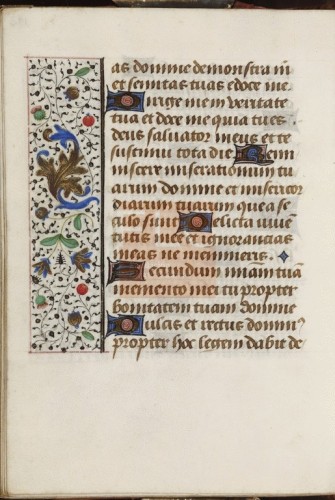 as domine demonstra m
et semitas tuas edoce me
Dirige me in veritate
tua et doce me quia tu es
deus salvator meus et te
sustinui tota die Remi
niscere miserationum tu
arum domine et misericor
diarum tuarum que a se
culo sunt Delicta iuue
tutis mee et ignorancias
meas ne memineris
Secundum miam tua
memento mei tu propter
bonitatem tuam domine
Dulcis et rectus domin9
propter hoc legem dabit de